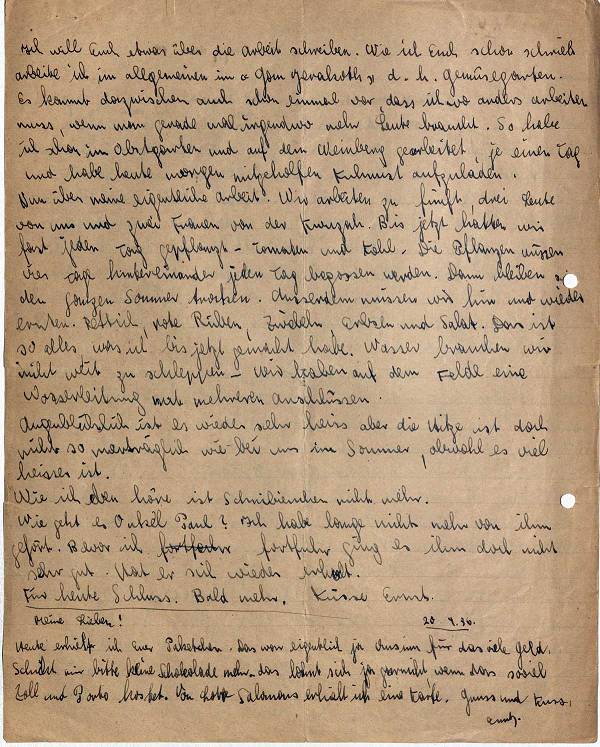 Ich will Euch etwas über die Arbeit schreiben. Wie ich Euch schon schrieb
arbeite ich im allgemeinen im « Gan d. h. Gemüsegarten.
Es kommt dazwischen auch schon einmal vor dass ich wo anders arbeiten
muss, wenn man gerade mal irgendwo mehr Leute braucht. So habe
ich schon im Obstgarten und auf dem Weinberg gearbeitet, je einen Tag
und habe heute morgen mitgeholfen Kuhmist aufzuladen.
Nun über meine eigentliche Arbeit. Wir arbeiten zu fünft, drei Leute
von uns und zwei Frauen von der Kwuzah. Bis jetzt hatten wir
fast jeden Tag gepflanzt – Tomaten und Kohl. Die Pflanzen müssen
vier Tage hintereinander jeden Tag begossen werden. Dann bleiben sie
den ganzen Sommer trocken. Ausserdem müssen wir hin und wieder
ernten. Rettich, rote Rüben, Zwiebeln, Erbsen und Salat. Das ist
so alles, was ich bis jetzt gemacht habe. Wasser brauchen wir
nicht weit zu schleppen – wir haben auf dem Felde eine
Wasserleitung mit mehreren Anschlüssen.
Augenblicklich ist es wieder sehr heiss aber die Hitze ist doch
nicht so unerträglich wie bei uns im Sommer, obwohl es viel
heisser ist.
Wie ich eben höre ist nicht mehr.
Wie geht es Onkel Paul? Ich habe lange nicht mehr von ihm
gehört. Bevor ich fortfuhr ging es ihm doch nicht
sehr gut. Hat er sich wieder erholt.
Für heute Schluss. Bald mehr. Küsse Ernst.
Meine Lieben! 20. 4. 36.
Heute erhielt ich Euer Paketchen. Das war eigentlich ja Unsinn für das viele Geld.
Schickt mir bitte keine Schokolade mehr. das lohnt sich ja garnicht wenn das soviel
Zoll und Porto kostet. Von Salomons erhielt ich eine Karte. Gruss und Kuss,
Ernst.